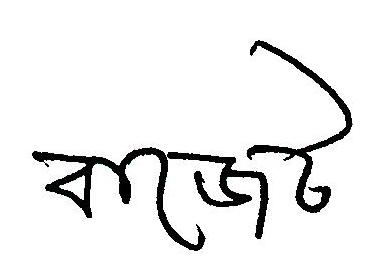 বাজেট